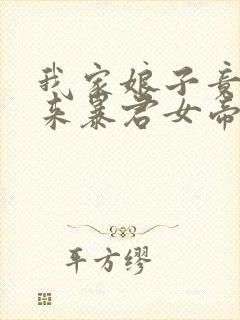 我家娘子竟
来暴君女帝
平方缪